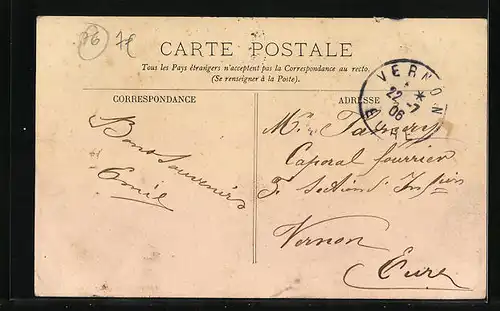 76 7f
CARTE POSTALE
Tous les Pays étrangers n'acceptent pas la Correspondance au recto.
(Se renseigner à la Poste).
CORRESPONDANCE
ADRESSE
VERNON
22 -7
06
EURE
Bons souvenirs
Emile
Mr
Caporal fourrier
Section d'
Vernon
Eure